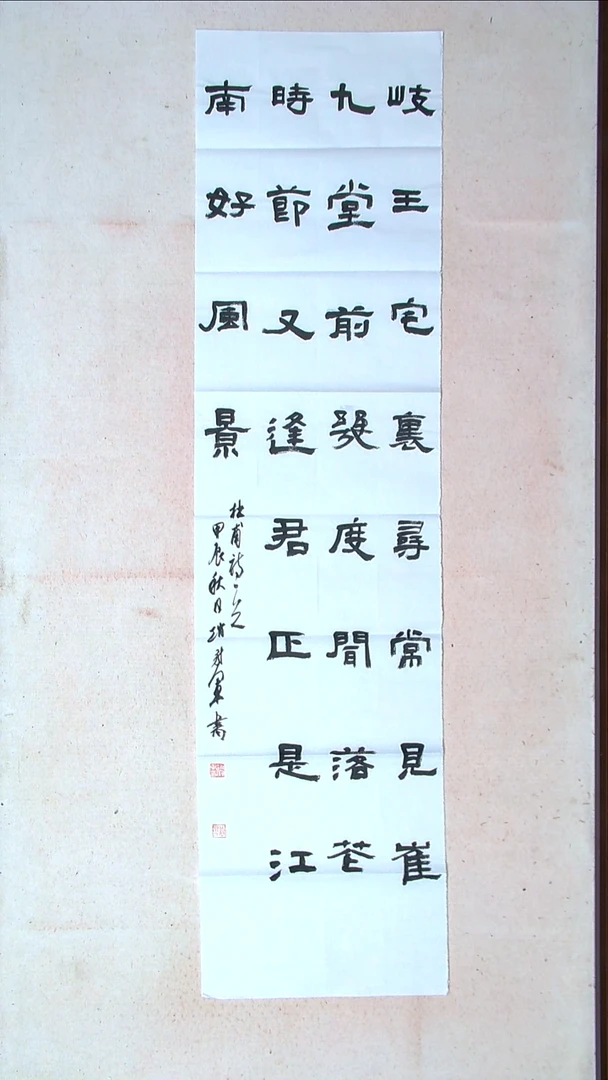 岐王宅裏尋常見崔
九堂前幾度聞落花
時節又逢君正是江
南好風景
杜甫詩一首
甲辰秋月趙軍書